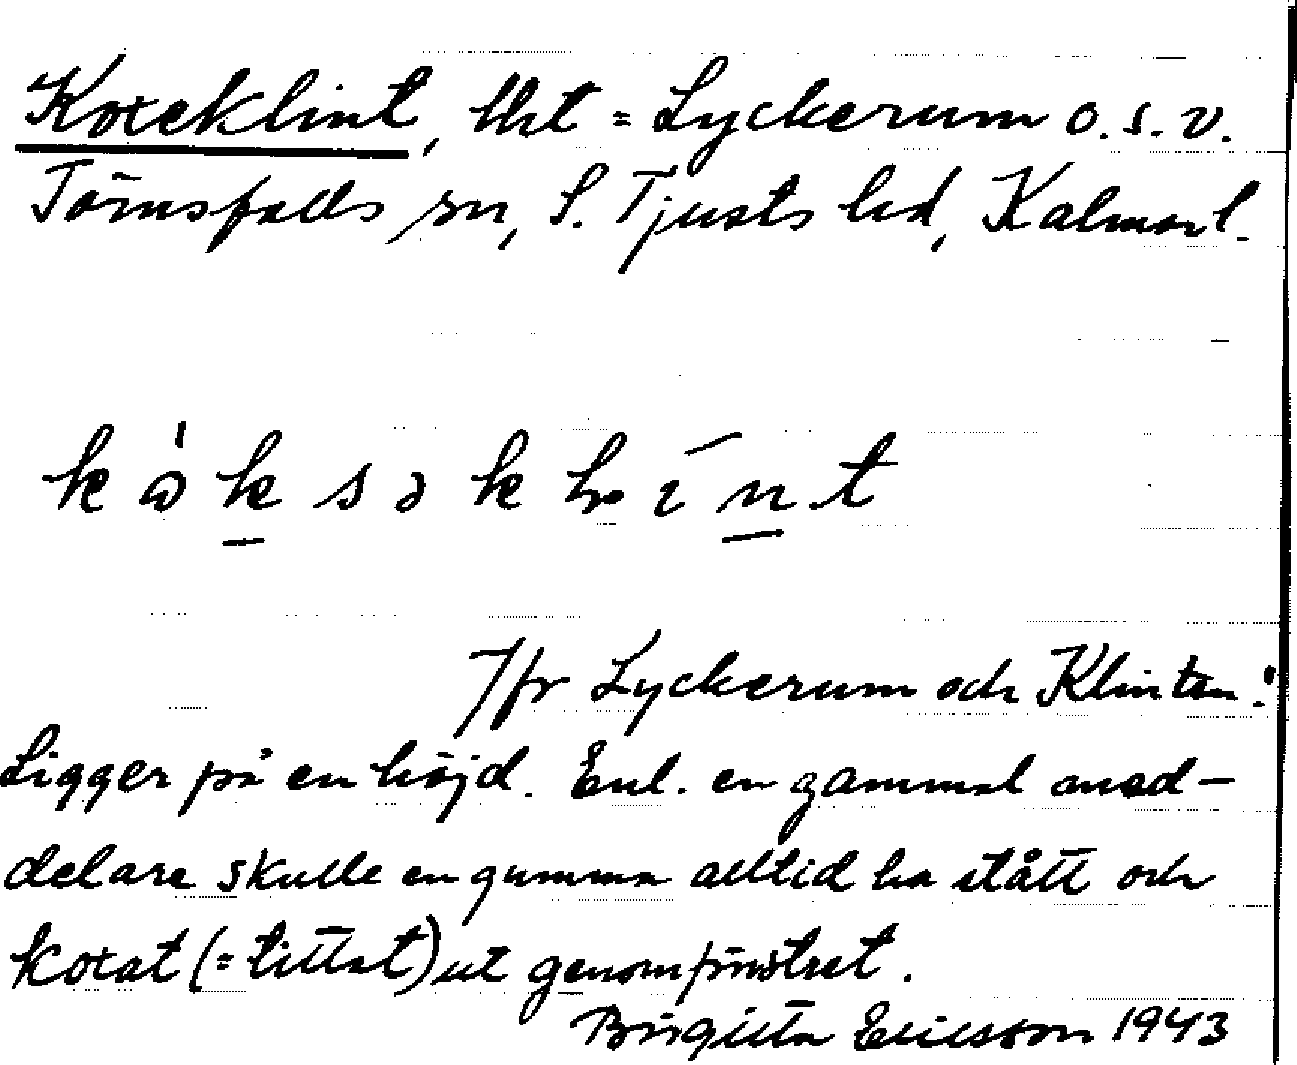 Koxeklint, tht = Lyckerum o.s.v.
Törnsfalls sn, S. Tjusts hd, Kalmar l.
kòksəklínt
Jfr Lyckerum och Klinten!
Ligger på en höjd. Enl. en gammal med-
delare skulle en gumma alltid ha stått och
koxat (= tittat) ut genom fönstret.
Birgitta Ericsson 1943